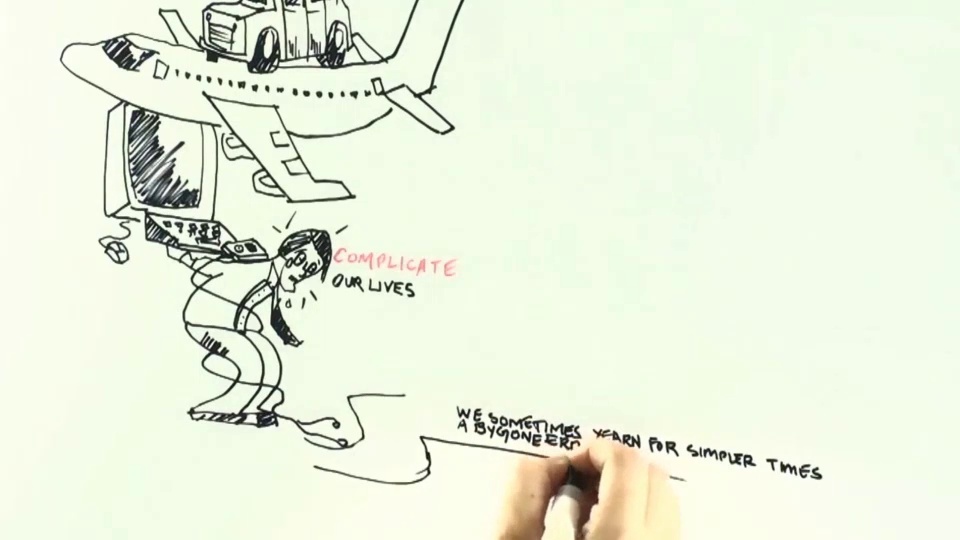 COMPLICATE
OUR LIVES
WE SOMETIMES YEARN FOR SIMPLER TIMES
A BYGONE ERA